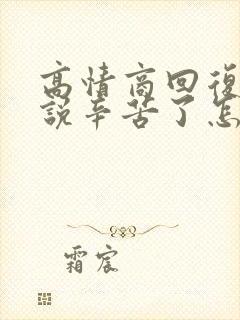 高情商回復
說辛苦了怎
霜宸